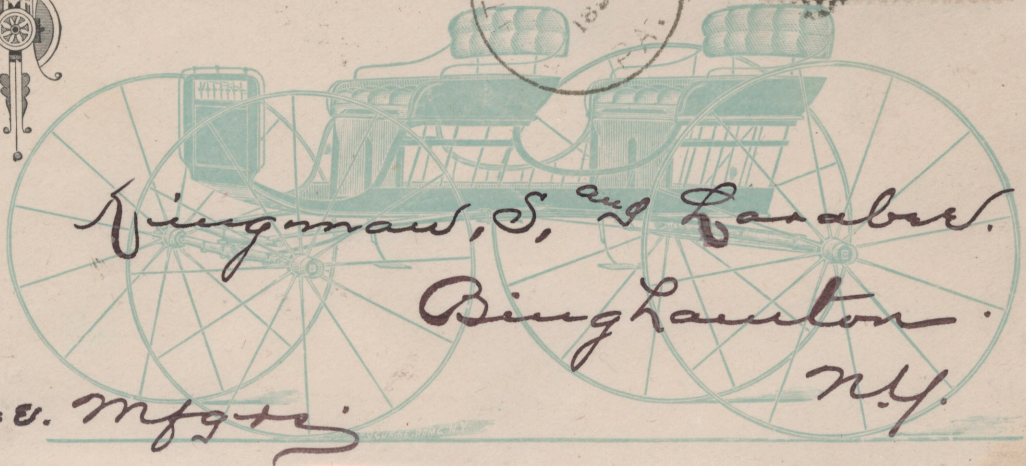 Kingman, S, and Larabee.
Binghamton.
N.Y.
Mfgrs.